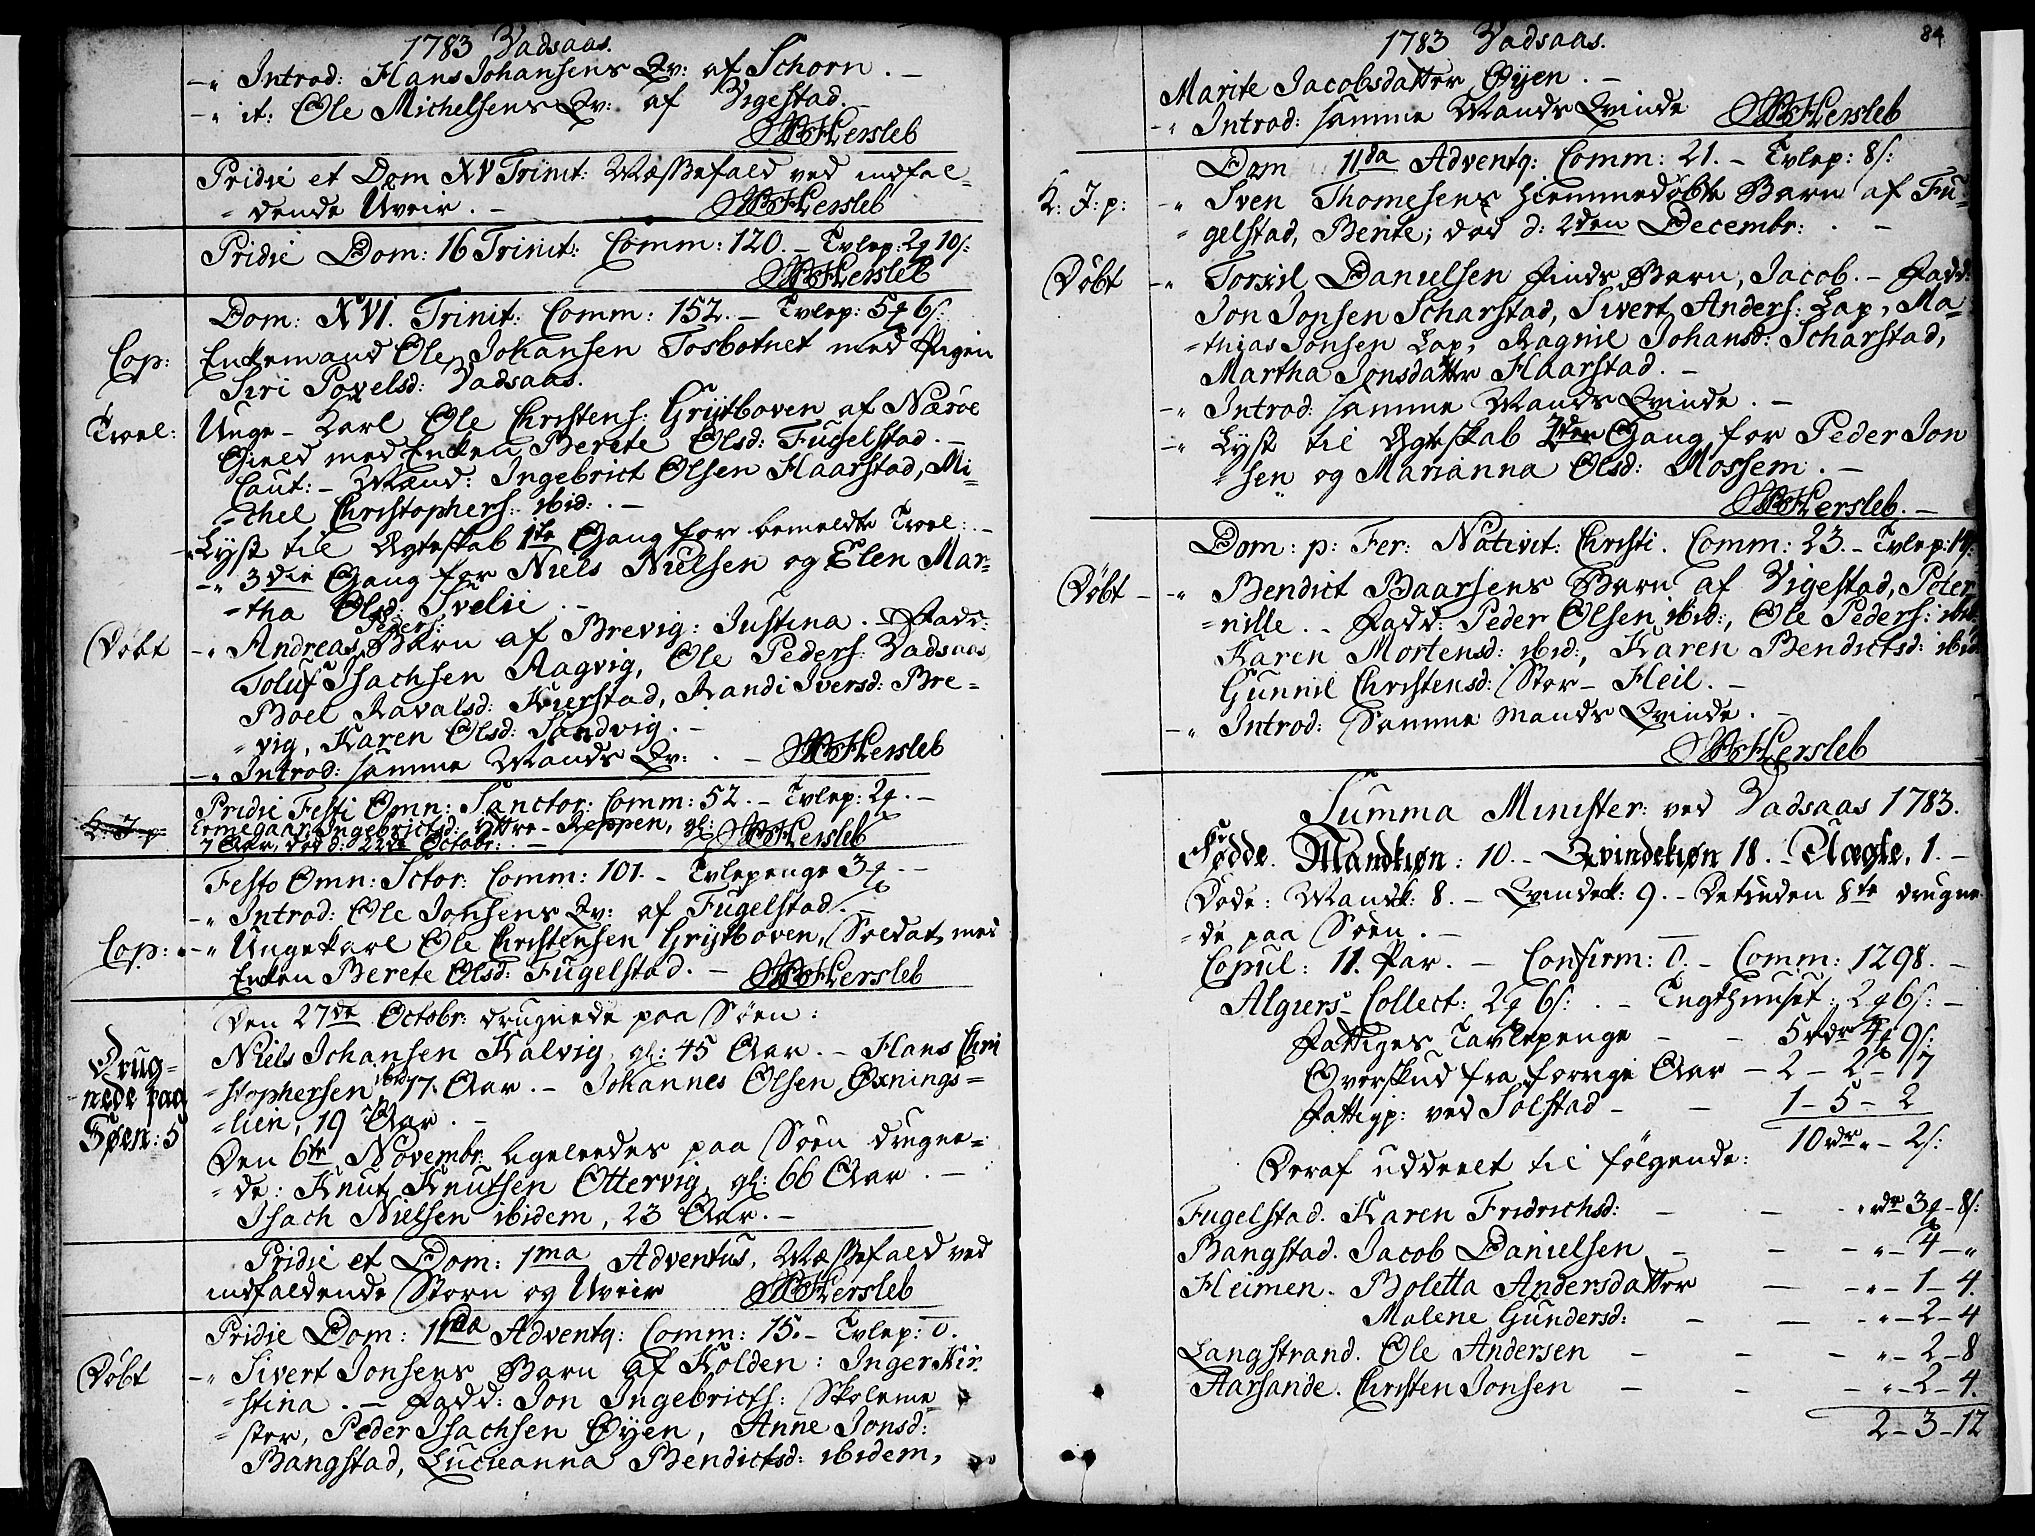 1783 Vadsaas.
-" Introd: Hans Johansens Qv: af Schorn. -
-" it: Ole Michelsens Qv: af Vigestad. -
Hersleb
Pridie et Dom XV Trinit: Mæssefald ved indfal-
-dende Uveir. -
Hersleb
Pridie Dom: 16 Trinit: Comm: 120. - Tvlep: 2 10 s:
Hersleb
Dom: XVI. Trinit: Comm: 152. - Tvlep: 5 6 s:
Cop: Enkemand Ole Johansen Tosbotnet med Pigen
Siri Povelsd: Vadsaas.
Trol: Unge-Karl Ole Christens: Grytboven af Nærøe
Gield med Enken Berete Olsd: Fugelstad. -
Caut: - Mænd: Ingebrict Olsen Haarstad, Mi-
-chel Christophers: ibid: . -
-" Lyst til Ægteskab 1te Gang for bemeldte Trol: -
-" 3die Gang for Niels Nielsen og Elen Mar-
-tha Olsd: Svelie. -
Døbt -" Andreas Peders: Barn af Brevig: Justina. - Fadd:
Toluf Isachsen Aagvig, Ole Peders: Vadsaas,
Boel Ravalsd: Kierstad, Randi Iversd: Bre-
-vig, Karen Olsd: Sandvig. -
-" Introd: samme Mands Qv: . - Hersleb
Pridie Festi Omn: Sanctor: Comm: 52. - Tvlep: 2. -
K: J: p: Ingebrictsd: Yttre-Reppen, gl:
7 Aar, død d: 22de Octobr: - Hersleb
Festo Omn: Sctor: Comm: 101. - Tvlepenge 3. -
-" Introd: Ole Jonsens Qv: af Fugelstad. -
Cop: -" Ungekarl Ole Christensen Grytboven, Soldat, med
Enken Berete Olsd: Fugelstad. - Hersleb
Den 27de Octobr: drugnede paa Søen:
Drug-
nede paa
Søen: 5
Niels Johansen Kalvig, gl: 45 Aar. - Hans Chri
-stophersen ibid 17 Aar. - Johannes Olsen Øxnings-
-lien, 19 Aar. -
Den 6te Novembr: ligeledes paa Søen drugne-
-de: Knut Knutsen Ottervig, gl: 66 Aar. -
Isach Nielsen ibidem, 23 Aar. -
Pridie et Dom: 1ma Adventus, Mæssefald ved
indfaldende Storm og Uveir Hersleb
Pridie Dom: 11da Adventq: Comm: 15. - Tvlep: 0.
Døbt -" Sivert Jonsens Barn af Kolden: Inger Kir-
-stina. - Fadd: Jon Ingebricts: Skoleme-
-ster, Peder Isachsen Øyen, Anne Jonsd:
Bangstad, Lucieanna Bendictsd: ibidem,
84
1783 Vadsaas.
Marite Jacobsdatter Øyen. -
-" Introd: samme Mands Qvinde Hersleb
Dom 11da Adventq: Comm: 21. - Tvlep: 8 s:
K: J: p: -" Sven Thomesens hiemmedøbte Barn af Fu-
-gelstad, Berite; død d: 2den Decembr: . -
Døbt -" Torkil Danielsen Finds Barn, Jacob. - Fadd:
Jon Jonsen Scharstad, Sivert Anders: Lap, Ma-
-thias Jonsen Lap, Ragnil Johansd: Scharstad,
Martha Jonsdatter Haarstad. -
-" Introd: samme Mands Qvinde. -
-" Lyst til Ægteskab 2den Gang for Peder Jon
-sen og Marianna Olsd: Mossem. -
Hersleb. -
Dom: p: Fer: Nativit: Christi. Comm: 23. - Tvlep: 14 s:
Døbt -" Bendict Baarsens Barn af Vigestad, Peter-
-nille. - Fadd: Peder Olsen ibid:, Ole Peders: ibid:
Karen Mortensd: ibid:, Karen Bendictsd: ibid:
Gunnil Christensd: Stor-Heil. -
-" Introd: Samme Mands Qvinde. -
Hersleb
Summa Minister: ved Vadsaas 1783.
Fødde. Mandkiøn: 10. - Qvindekiøn 18. - Uægte, 1. -
Døde: Mandk: 8. - Qvindek: 9. - Desuden 8te drugne-
-de paa Søen. -
Copul: 11. Par. - Confirm: 0. - Comm: 1298. -
Algiers-Collect: 2 6 s: . - Tugthuuset: 2 6 s: -
Fattiges Tavlepenge - - 5 rdr 4 9 s:
Overskud fra forrige Aar - 2 - 2 - 7
Fattigp: ved Solstad - - 1 - 5 - 2
10 rdr " - 2 s:
Deraf uddeelt til følgende:
Fugelstad. Karen Fridrichsd: - - " dr 3 - 8 s:
Bangstad. Jacob Danielsen - - - " - 4 - "
Heimen. Boletta Andersdatter - - " - 1 - 4.
Malene Gundersd: - - - " - 2 - 4
Langstrand. Ole Andersen - - - " - 2 - 8
Aarsande. Christen Jonsen - - - " - 2 - 4.
2 - 3 - 12